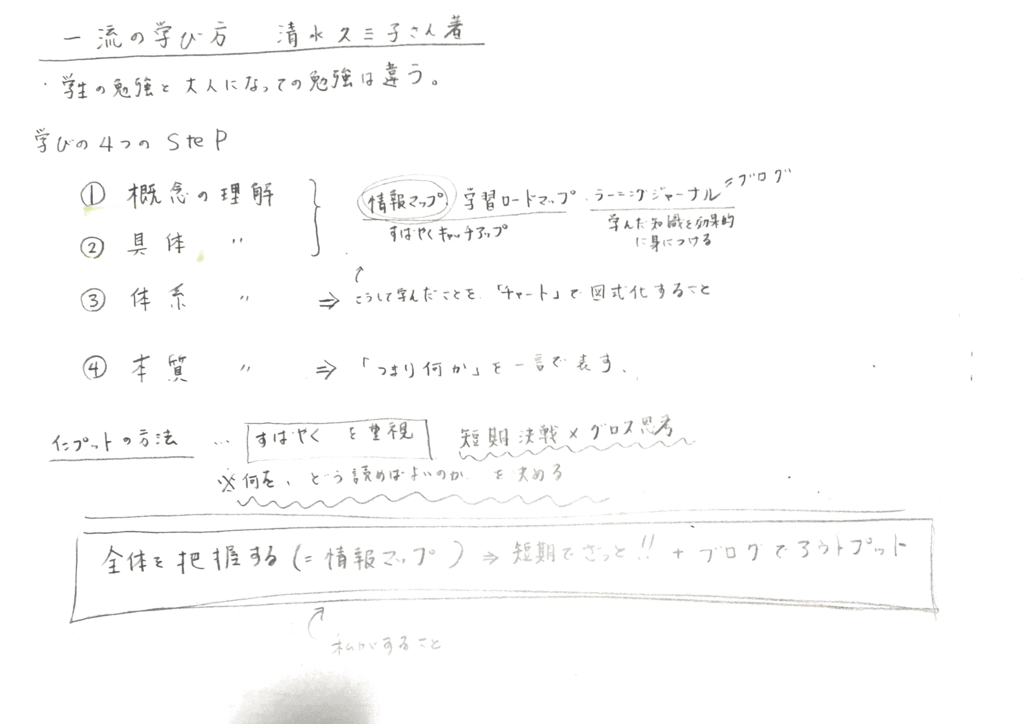 一流の学び方 清水久三子さん著
・学生の勉強と大人になっての勉強は違う。
学びの4つのSteP
① 概念の理解
情報マップ 学習ロードマップ ・ラーニングジャーナル =ブログ
すばやくキャッチアップ 学んだ知識を効果的
に身につける
② 具体 〃
③ 体系 〃 ⇒ こうして学んだことを、「チャート」で図式化すること
④ 本質 〃 ⇒ 「つまり何か」を一言で表す、
インプットの方法 … すばやく を重視 短期決戦×グロス思考
※何を、どう読めばよいのか を決める
全体を把握する(=情報マップ) ⇒ 短期でざっと!! + ブログでアウトプット
私がすること